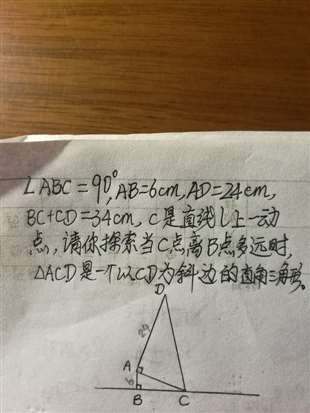 ∠ABC=90°,AB=6cm,AD=24cm,
BC+CD=34cm.C是直线l上一动
点,请你探索当C点离B点多远时,
△ACD是一个以CD为斜边的直角三角形.
D
24
A
6
B
C